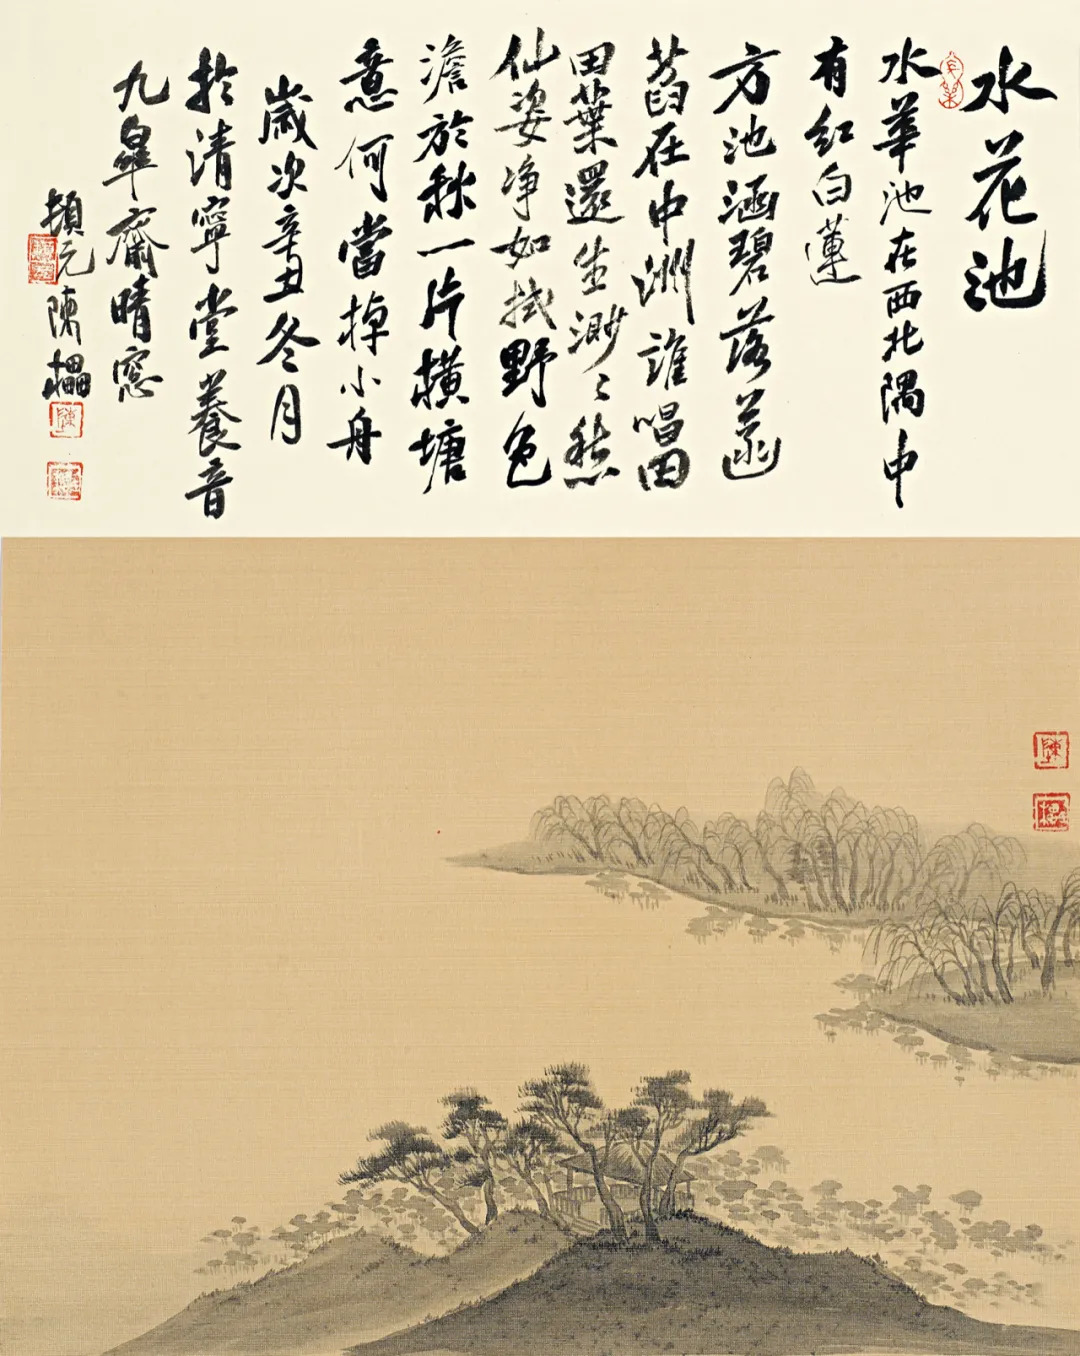 水花池
水華池在西北隅中
有红白蓮
方池涵碧落菡
萏在中洲誰唱田
田葉還生渺〻愁
仙姿净如拭野色
澹於秋一片横塘
意何當棹小舟
歲次辛丑冬月
於清寧堂養音
九皋齋晴窓
頓元陳